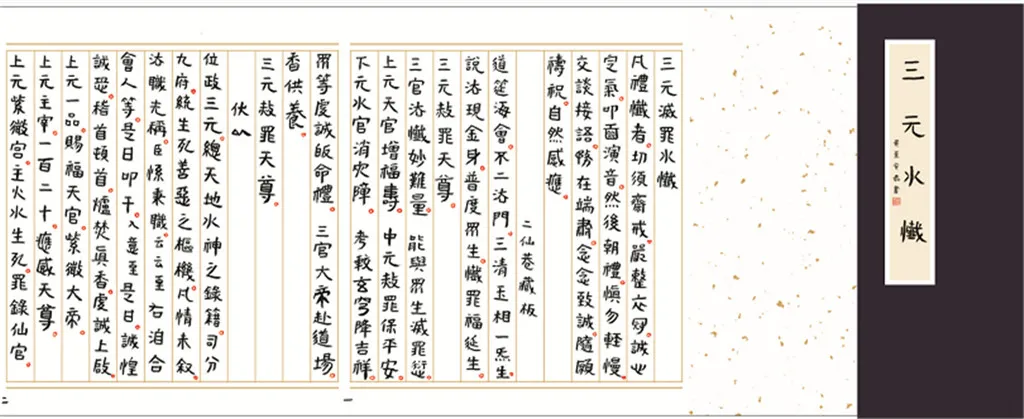 三元水懺
三元滅罪水懺
凡禮懺者切須齋戒嚴整衣冠誠心
定氣叩齒演音然後朝禮慎勿輕慢
交談接語務在端肅念念致誠隨願
禱祝自然感應
二仙菴藏板
道筵海會不二法門 三清玉相一炁生
說法現金身普度眾生懺罪福延生
三元赦罪天尊
三官法懺妙難量 能與眾生滅罪愆
上元天官增福壽 中元赦罪保平安
下元水官消灾障 考較玄穹降吉祥
一
眾等虔誠皈命禮 三官大帝赴道場
香供養
三元赦罪天尊
伏以
位政三元總天地水神之錄籍司分
九府統生死善惡之樞機凡情未叙
法職先稱臣係秉職云云至右洎合
會人等是日叩干入意至是日誠惶
誠恐稽首頓首爐焚眞香虔誠上啟
上元一品賜福天官紫微大帝
上元主宰一百二十應感天尊
上元紫微宮主火水生死罪錄仙官
二